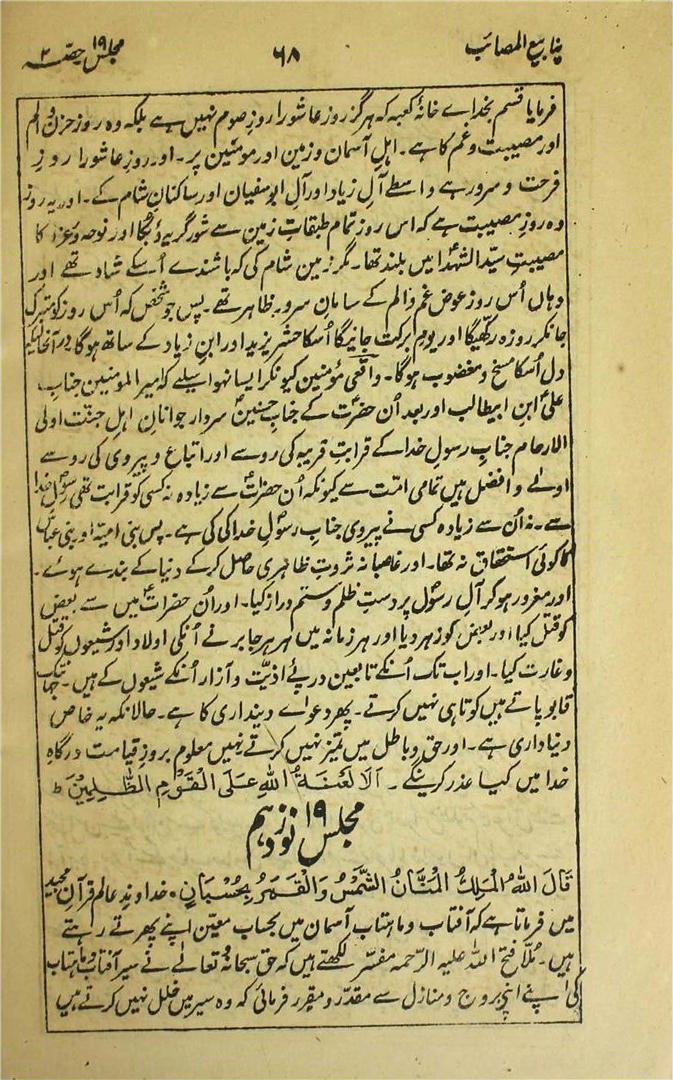 ینابیع المصائب ۶۸ مجلس ۱۹ حصہ ۲
فرمایا قسم بخداے خانۂ کعبہ کہ ہرگز روز عاشورا روزِ صوم نہیں ہے بلکہ وہ روز حزن و الم
اور مصیبت و غم کا ہے۔ اہلِ آسمان و زمین اور مومنین پر۔ اور روزِ عاشورا روزِ
فرحت و سرور ہے واسطے آلِ زیاد اور آلِ ابوسفیان اور ساکنانِ شام کے۔ اور یہ روز
وہ روزِ مصیبت ہے کہ اس روز تمام طبقاتِ زمین سے شور گریہ و بُکا اور نوحہ و عزا کا
مصیبتِ سیّد الشہدا میں بلند تھا۔ مگر زمین شام کی کہ باشندے اُسکے شاد تھے اور
وہاں اُس روز عوض غم و الم کے سامان سرور ظاہر تھے۔ پس جو شخص کہ اُس روز کو متبرک
جانکر روزہ رکھیگا اور یومِ برکت جانیگا اُسکا حشر یزید اور ابنِ زیاد کے ساتھ ہوگا در آنحالیکہ
دل اُسکا مسخ و مغضوب ہوگا۔ واقعی مؤمنین کیونکر ایسا نہو اسلیے کہ امیر المومنین جناب
علیؑ ابنِ ابیطالب اور بعد اُن حضرت کے جناب حسنینؑ سردار جوانانِ اہلِ جنّت اولی
الارحام جنابِ رسولِ خدا کے قرابتِ قریبہ کی رو سے اور اتباع و پیروی کی رو سے
اولےٰ و افضل ہیں تمامی امت سے کیونکہ اُن حضراتؑ سے زیادہ نہ کسی کو قرابت تھی رسولِ خدا
سے۔ نہ اُن سے زیادہ کسی نے پیروی جناب رسولِ خدا کی کی ہے۔ پس بنی امیّہ اور بنی عباس
کا کوئی استحقاق نہ تھا۔ اور غاصبانہ ثروتِ ظاہری حاصل کرکے دنیا کے بندے ہوئے۔
اور مغرور ہوکر آلِ رسول پر دستِ ظلم و ستم دراز کیا۔ اور اُن حضراتؑ میں سے بعض
کو قتل کیا اور بعض کو زہر دیا اور ہر زمانہ میں ہر ہر جابر نے اُنکی اولاد اور شیعوں کو قتل
و غارت کیا۔ اور اب تک اُنکے تابعین درپئے اذیّت و آزار اُنکے شیعوں کے ہیں۔ جہانتک
قابو پاتے ہیں کوتاہی نہیں کرتے۔ پھر دعواے دینداری کا ہے۔ حالانکہ یہ خاص
دنیاداری ہے۔ اور حق و باطل میں تمیز نہیں کرتے نہیں معلوم بروزِ قیامت درگاہِ
خدا میں کیا عذر کرینگے۔ اَلَا لَعْنَةُ اللّٰهِ عَلَى الْقَوْمِ الظّٰلِمِیْنَ ط
مجلس ۱۹ نوزدہم
قَالَ اللّٰهُ الْمَلِكُ الْمَنَّانُ الشَّمْسُ وَالْقَمَرُ بِحُسْبَانٍ۔ خداوندِ عالم قرآنِ مجید
میں فرماتا ہے کہ آفتاب و ماہتاب آسمان میں بحساب معیّن اپنے پھرتے رہتے
ہیں۔ مُلّا فتح اللہ علیہ الرّحمہ مفسّر لکھتے ہیں کہ حق سبحانہ و تعالےٰ نے سیر آفتاب و ماہتاب
کی اپنے اپنی بروج و منازل سے مقدّر و مقرر فرمائی کہ وہ سیر میں خلل نہیں کرتے ہیں